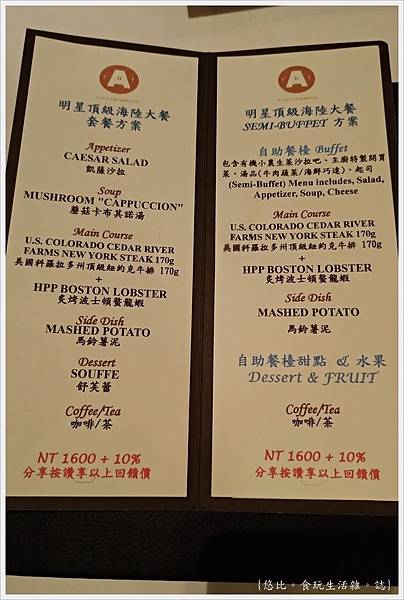 A
明星頂級海陸大餐
套餐方案
Appetizer
CAESAR SALAD
凱薩沙拉
Soup
MUSHROOM "CAPPUCCION"
蘑菇卡布其諾湯
Main Course
U.S. COLORADO CEDAR RIVER
FARMS NEW YORK STEAK 170g
美國科羅拉多州頂級紐約克牛排 170g
+
HPP BOSTON LOBSTER
炙烤波士頓螯龍蝦
Side Dish
MASHED POTATO
馬鈴薯泥
Dessert
SOUFFE
舒芙蕾
Coffee/Tea
咖啡/茶
NT 1600 + 10%
分享按讚享以上回饋價
A
明星頂級海陸大餐
SEMI-BUFFET 方案
自助餐檯 Buffet
包含有機小農生菜沙拉吧、主廚特製開胃
菜、湯品(牛肉蔬菜/海鮮巧達)、起司
(Semi-Buffet) Menu includes, Salad,
Appetizer, Soup, Cheese
Main Course
U.S. COLORADO CEDAR RIVER
FARMS NEW YORK STEAK 170g
美國科羅拉多州頂級紐約克牛排 170g
+
HPP BOSTON LOBSTER
炙烤波士頓螯龍蝦
Side Dish
MASHED POTATO
馬鈴薯泥
自助餐檯甜點 & 水果
Dessert & FRUIT
Coffee/Tea
咖啡/茶
NT 1600 + 10%
分享按讚享以上回饋價
{悠比。食玩生活雜。誌}